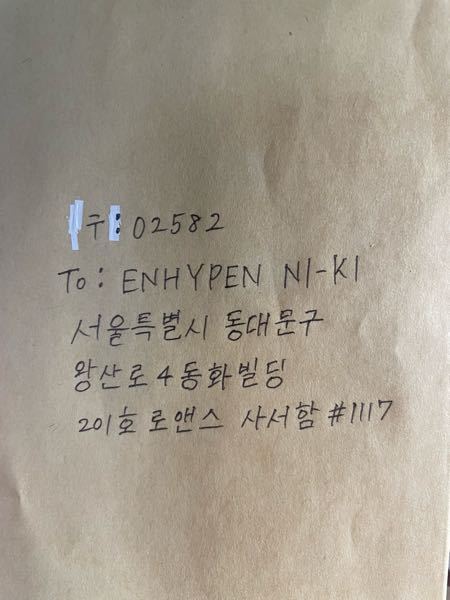 구: 02582
To: ENHYPEN NI-KI
서울특별시 동대문구
왕산로 4 동화빌딩
201호 로앤스 사서함 #1117